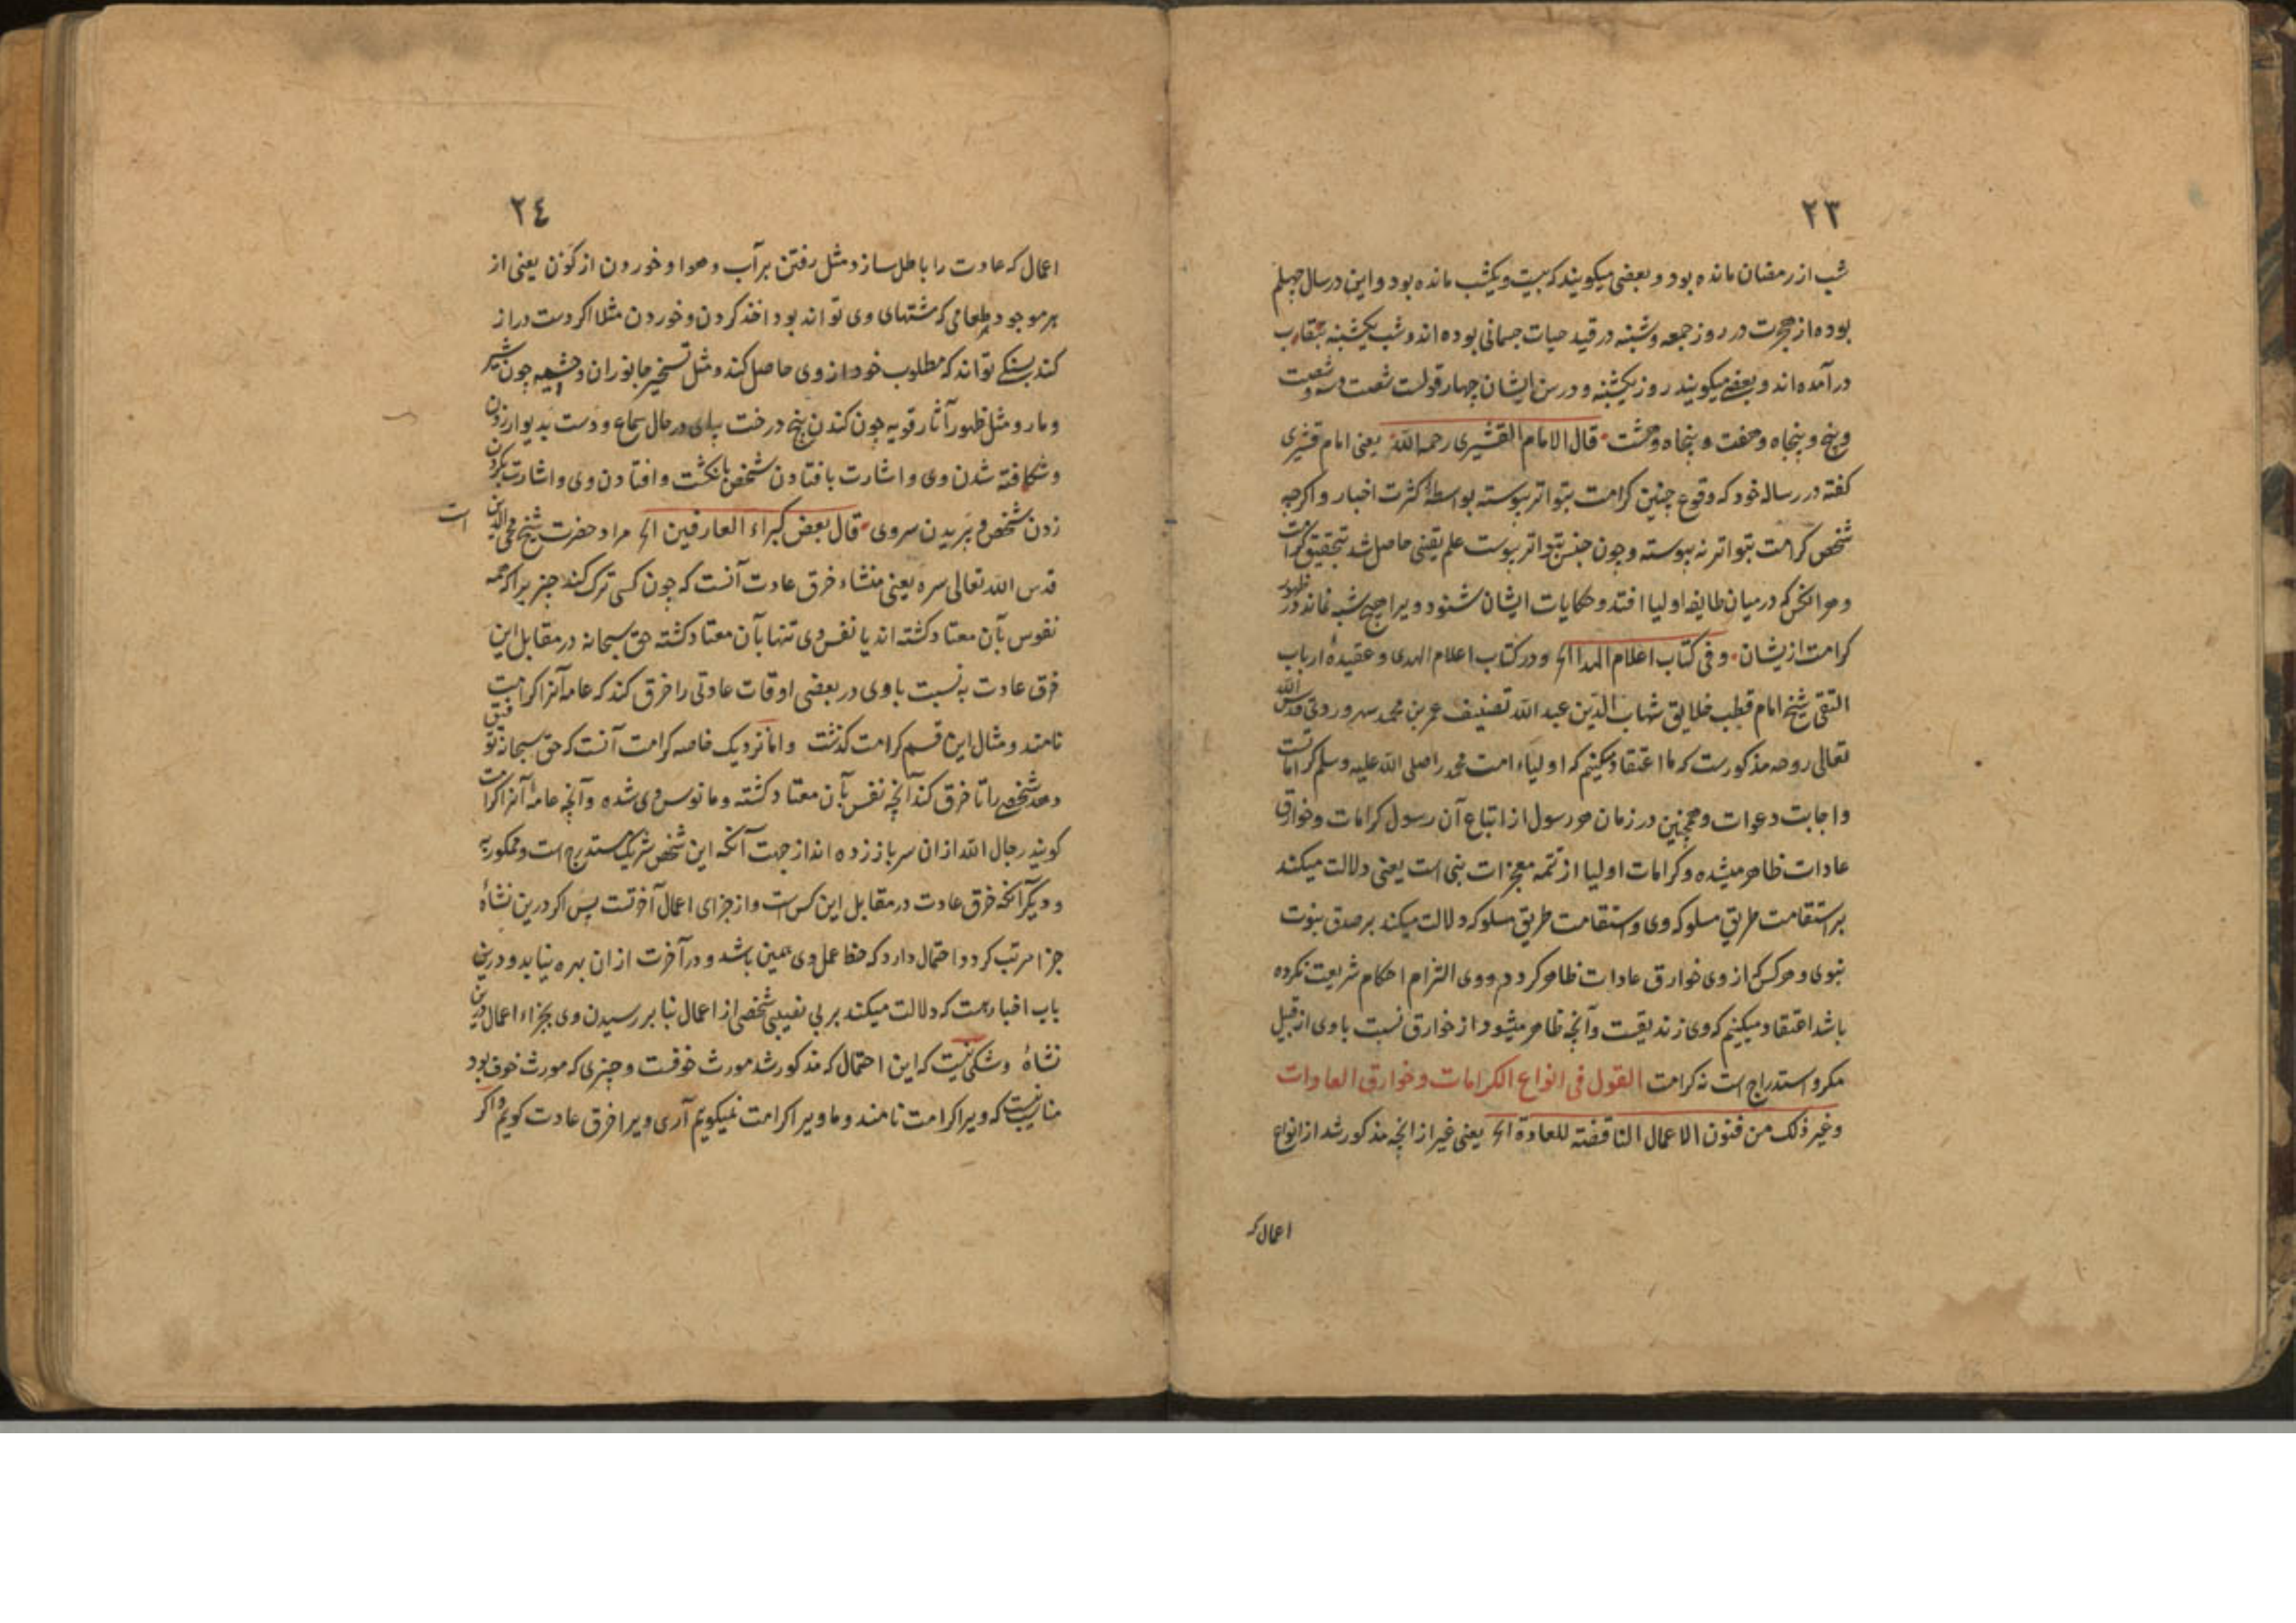 ٢٣
شب از رمضان مانده بود و بعضی میکویند که بیست و یکشب مانده بود و این در سال چهلم
بوده از هجرت در روز جمعه و شنبه در قید حیات جسمانی بوده اند و شب یکشنبه بنقاب
در آمده اند و بعضی میکویند روز یکشنبه و در سن ایشان چهار قولست شصت و سه و شصت
و پنج و پنجاه و هفت و پنجاه و هشت قال الامام القشیری رحمه الله یعنی امام قشیری
کفته در رساله خود که وقوع چنین کرامت بتواتر پیوسته بواسطهٔ کثرت اخبار و اکرچه
شخص کرامت بتواتر نه پیوسته و چون جنس بتواتر پیوست علم یقینی حاصل شد بتحقیق کرامت
و هر انکس که در میان طایفه اولیا افتد و حکایات ایشان شنود ویرا هیچ شبه نماند در ظهور
کرامت ازیشان وفی کتاب اعلام الهدا الخ و در کتاب اعلام الهدی و عقیدهٔ ارباب
التقی شیخ امام قطب خلایق شهاب الدین عبد الله تصنیف عمر بن محمد سهروردی قدس الله
تعالی روحه مذکورست که ما اعتقاد میکنیم که اولیاء امت محمد را صلی الله علیه وسلم کراماتست
و اجابت دعوات و همچنین در زمان هر رسول از اتباع آن رسول کرامات و خوارق
عادات ظاهر میشده و کرامات اولیا از تتمه معجزات نبی است یعنی دلالت میکند
بر استقامت طریق سلوکه وی و استقامت طریق سلوکه دلالت میکند بر صدق نبوت
نبوی و هر کس که از وی خوارق عادات ظاهر کردد و وی التزام احکام شریعت نکرده
باشد اعتقاد میکنیم که وی زندیقست و آنچه ظاهر میشود از خوارق نسبت با وی از قبیل
مکر و استدراج است نه کرامت القول فی انواع الکرامات وخوارق العادات
وغیر ذلک من فنون الاعمال الناقضة للعادة الخ یعنی غیر از انچه مذکور شد از انواع
اعمال که
٢٤
اعمال که عادت را باطل سازد مثل رفتن بر آب و هوا و خوردن از کون یعنی از
هر موجود طعامی که مشتهای وی تواند بود اخذ کردن و خوردن مثلا اکر دست دراز
کند بسنکی تواند که مطلوب خود از وی حاصل کند و مثل تسخیر جانوران وحشیه چون شیر
و مار و مثل ظهور آثار قویه چون کندن بیخ درخت بپای در حال سماع و دست بدیوار زدن
و شکافته شدن وی و اشارت با فتادن شخص بانکشت و افتادن وی و اشارت بکردن
زدن شخص و بریدن سر وی قال بعض کبراء العارفین الخ مراد حضرت شیخ محی الدین است
قدس الله تعالی سره یعنی منشاء خرق عادت آنست که چون کسی ترک کند چیزیرا که همه
نفوس بآن معتاد کشته اند یا نفس وی تنها بآن معتاد کشته حق سبحانه در مقابل این
خرق عادت به نسبت با وی در بعضی اوقات عادتی را خرق کند که عامه آنرا کرامت
نامند و مثال این قسم کرامت کذشت و اما نزدیک خاصه کرامت آنست که حق سبحانه توفیق
دهد شخصی را تا خرق کند آنچه نفس بآن معتاد کشته و مانوس وی شده و آنچه عامه آنرا کرامت
کویند رجال الله از ان سر باز زده اند از جهت آنکه این شخص شریک مستدرج است و ممکور به
و دیکر آنکه خرق عادت در مقابل این کس است و از جزای اعمال آخرتست پس اکر درین نشأهٔ
جزا مرتب کردد احتمال دارد که حظ عمل وی همین باشد و در آخرت از ان بهره نیابد و درین
باب اخبار هست که دلالت میکند بر بی نصیبی شخصی از اعمال بنا بر رسیدن وی بجزاء اعمال درین
نشأهٔ و شکی نیست که این احتمال که مذکور شد مورث خوفست و چیزی که مورث خوف بود
مناسب نیست که ویرا کرامت نامند و ما ویرا کرامت نمیکویم آری ویرا خرق عادت کویم و اکر